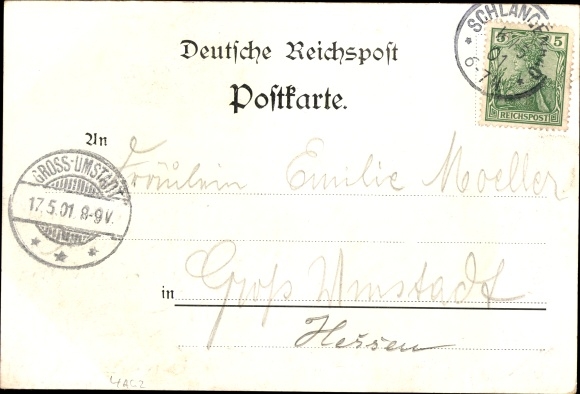 Deutsche Reichspost
Postkarte.
SCHLANGE
01
6-7
5 5
REICHSPOST
An Fräulein Emilie Moeller
GROSS-UMSTADT
17.5.01 8-9V.
in Groß Umstadt
Hessen